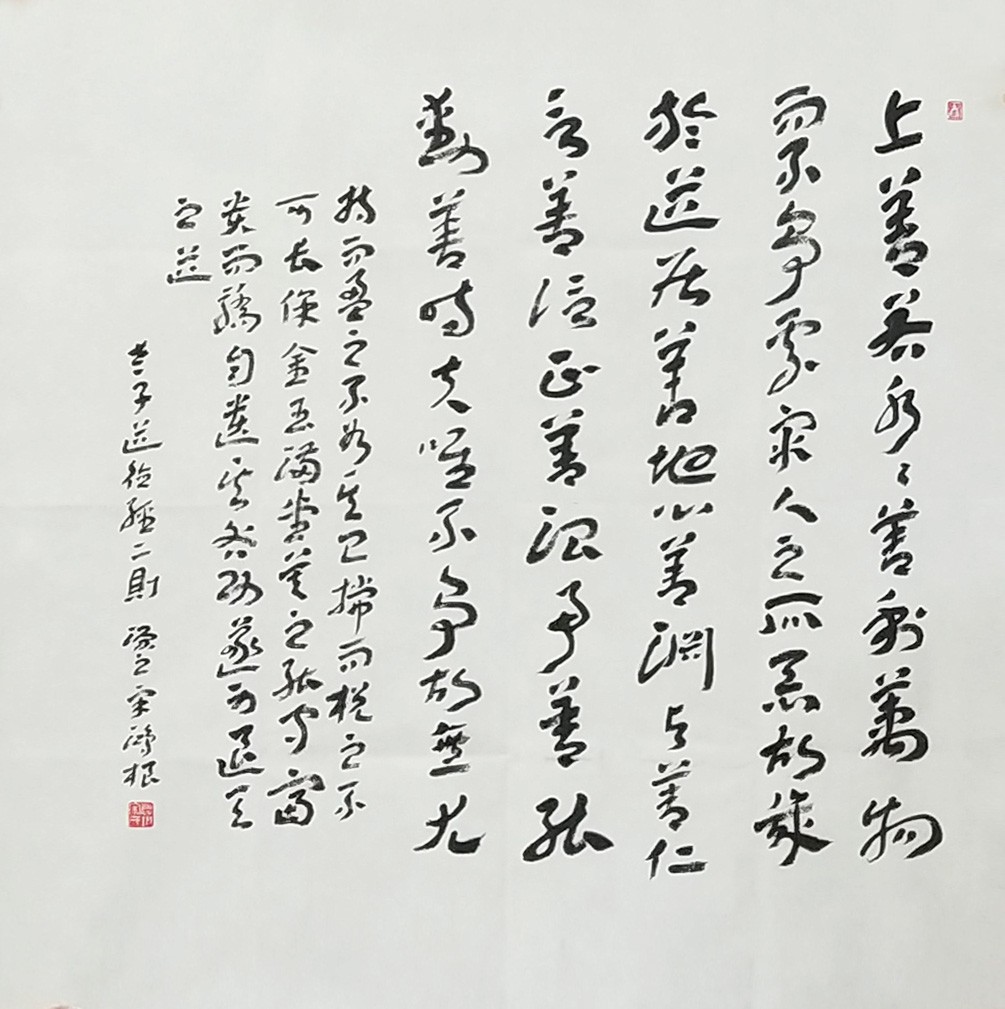 上善若水〻善利萬物
而不爭處眾人之所惡故幾
於道居善地心善淵与善仁
言善信正善治事善能
動善時夫唯不爭故無尤
持而盈之不如其已揣而梲之不
可長保金玉滿堂莫之能守富
貴而驕自遺其咎功遂身退天
之道
老子道德經二則 宋鴻根